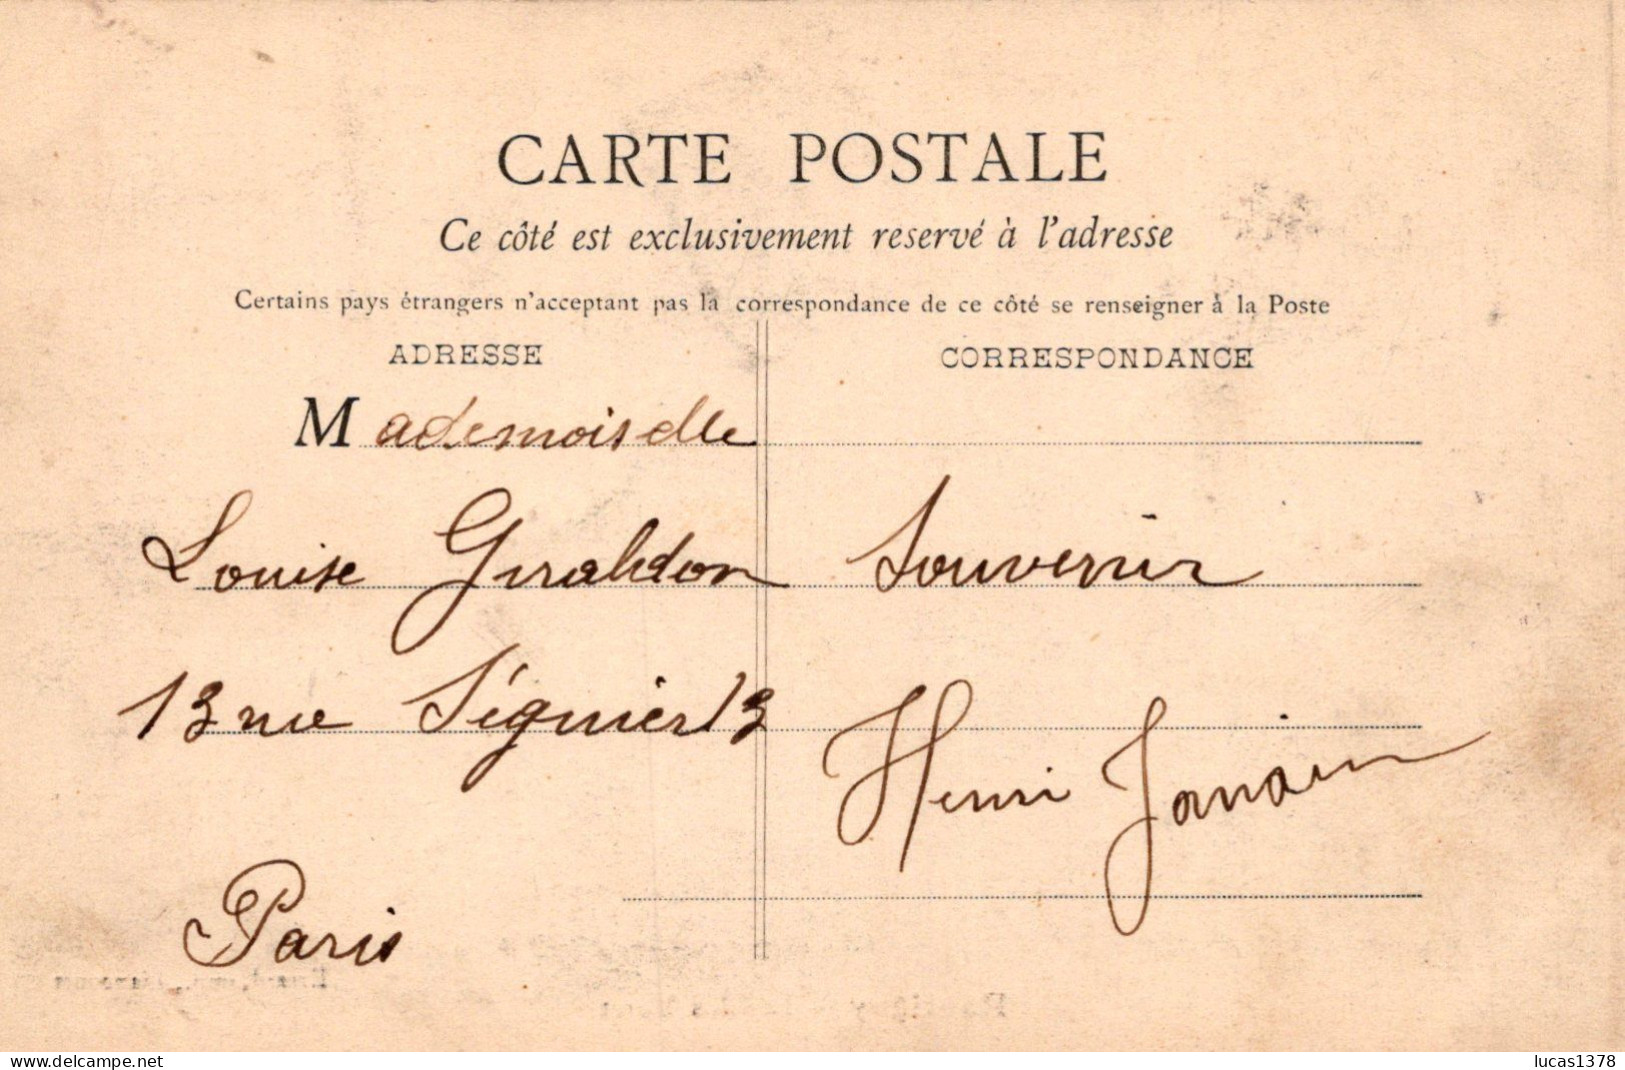 CARTE POSTALE
Ce côté est exclusivement reservé à l'adresse
Certains pays étrangers n'acceptant pas la correspondance de ce côté se renseigner à la Poste
ADRESSE
Mademoiselle
Louise Giraldon
13 rue Séguier 13
Paris
CORRESPONDANCE
Souvenir
Henri Janain
www.delcampe.net
lucas1378